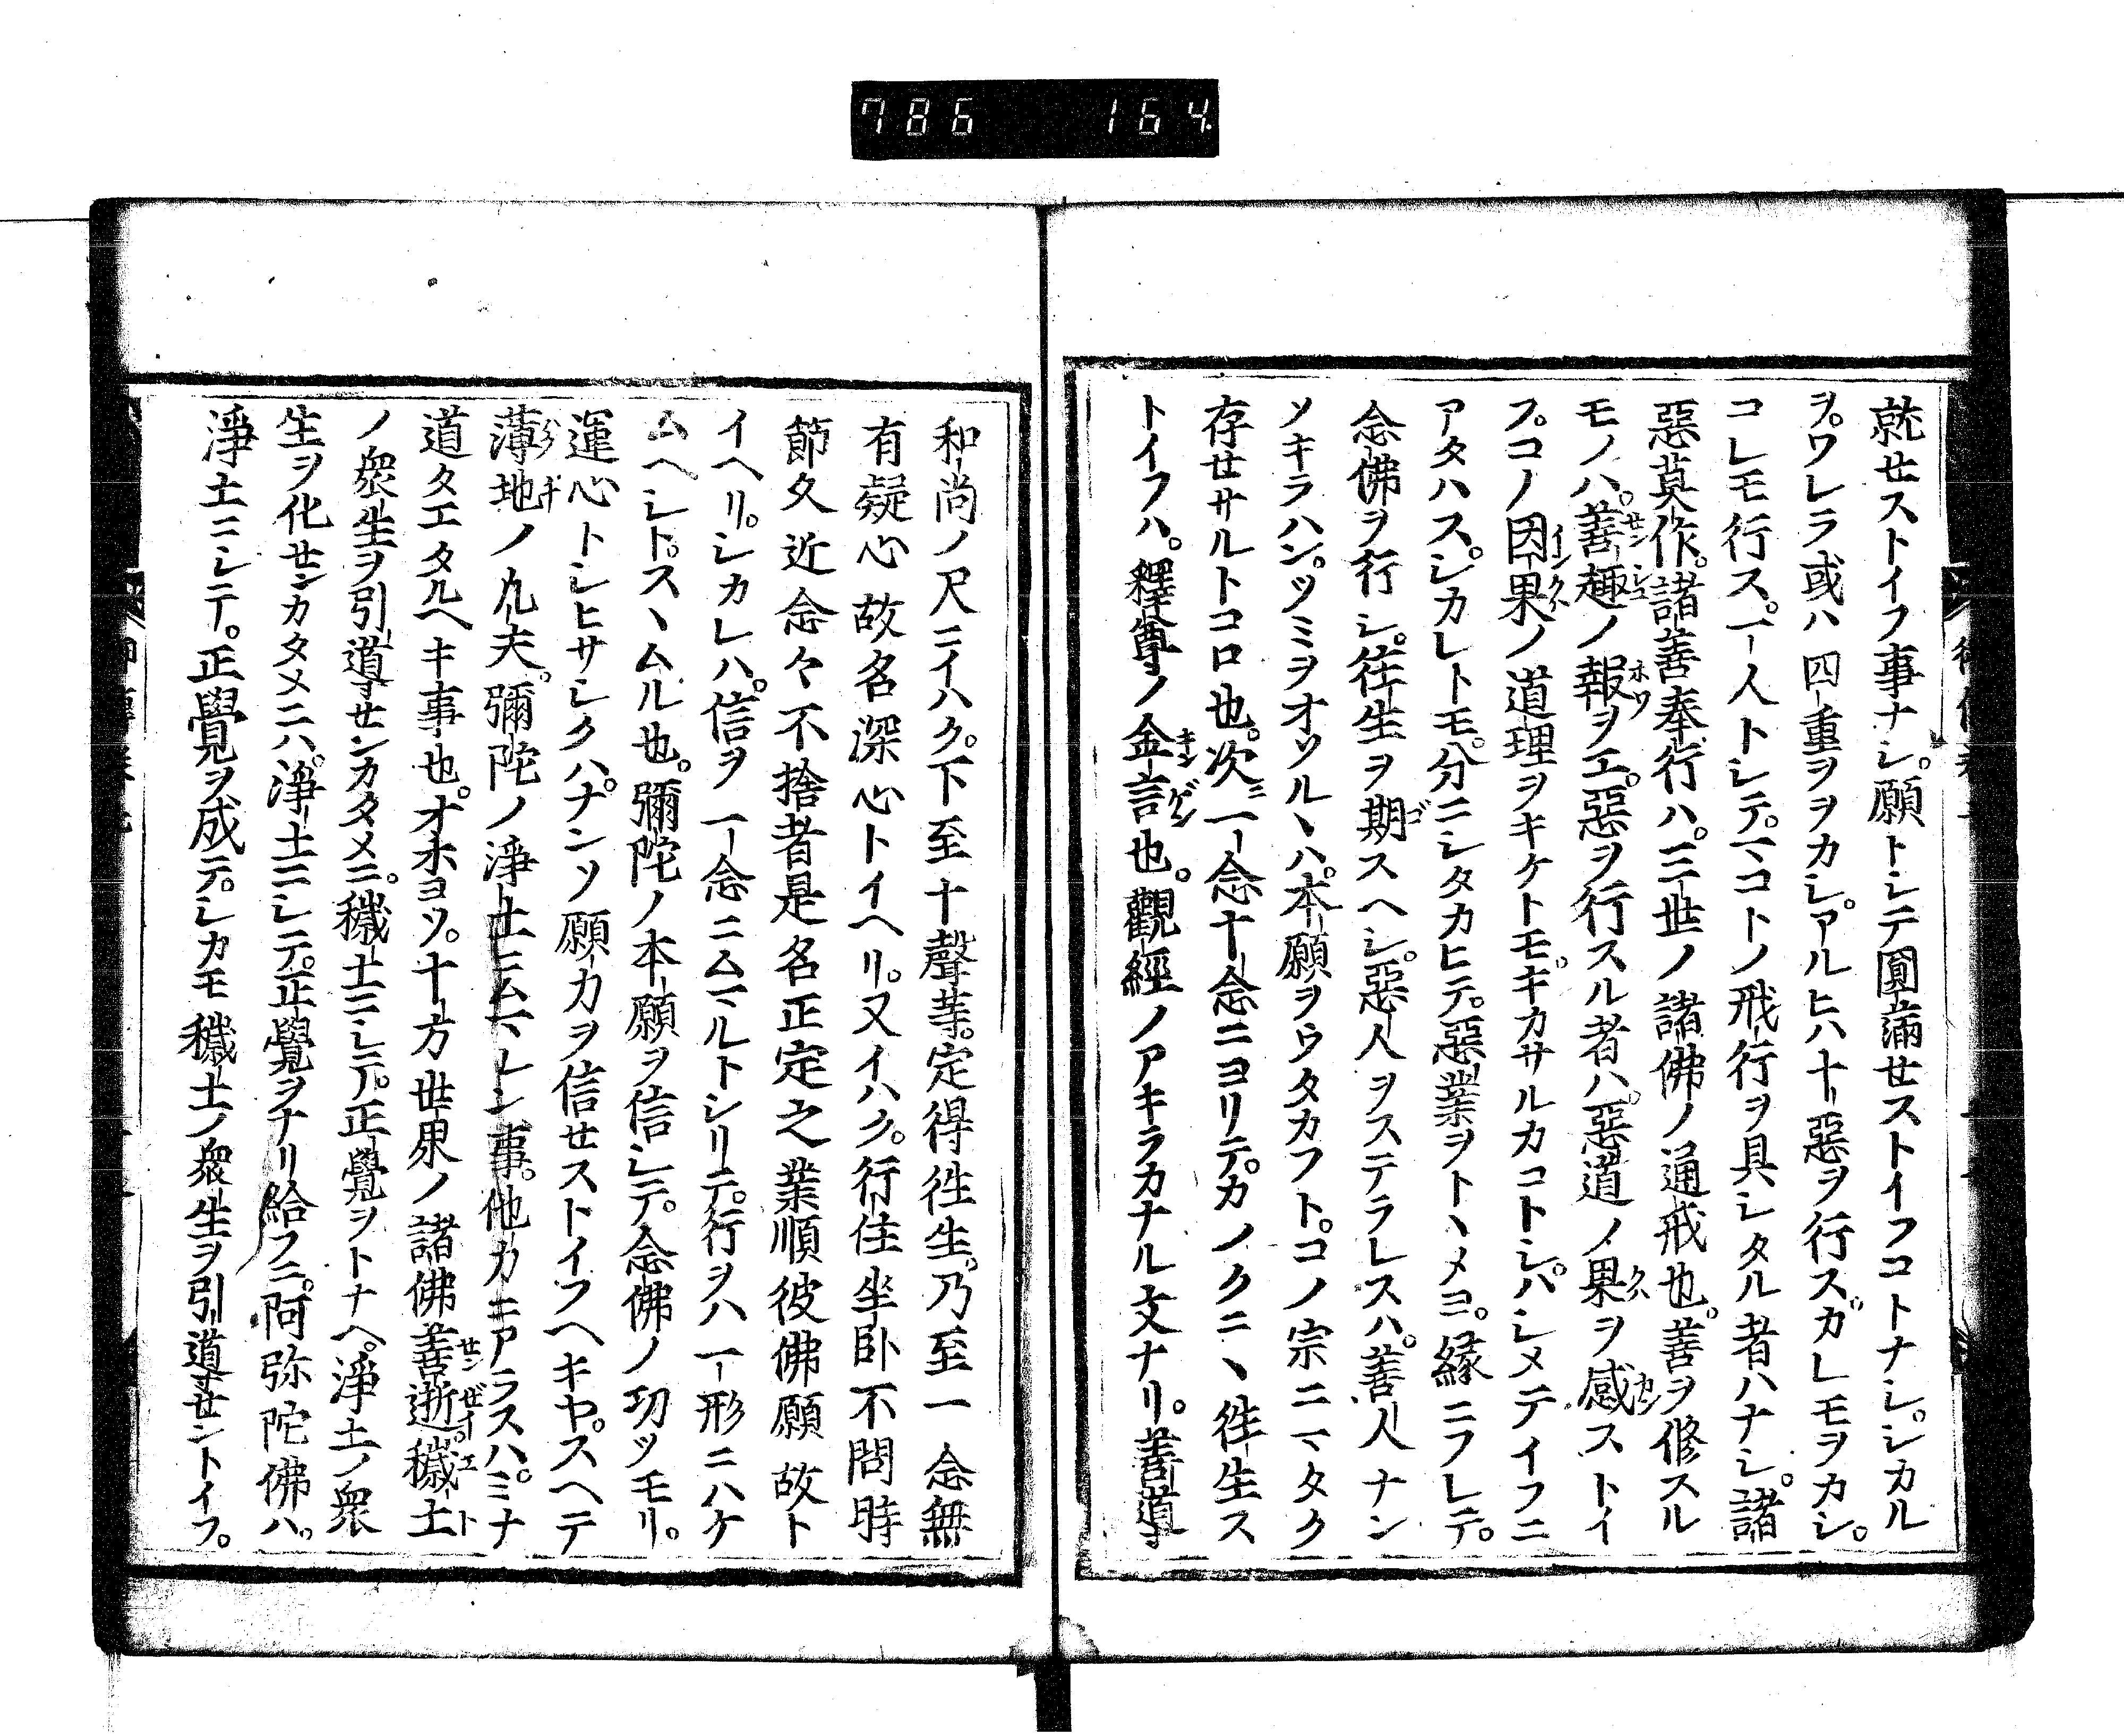 786 164
就せストイフ事ナシ。願トシテ圓滿せストイフコトナシ。シカル
ヲ。ワレラ或ハ四重ヲヲカシ。アルヒハ十惡ヲ行ス。カレモヲカシ。
コレモ行ス。一人トシテ。マコトノ戒行ヲ具シタル者ハナシ。諸
惡莫作。諸善奉行ハ。三世ノ諸佛ノ通戒也。善ヲ修スル
モノハ。善趣ノ報ヲエ。惡ヲ行スル者ハ。惡道ノ果ヲ感ストイ
フ。コノ因果ノ道理ヲキケトモ。キカサルカコトシ。ハシメテイフニ
アタハス。シカレトモ。分ニシタカヒテ。惡業ヲトヽメヨ。縁ニフレテ。
念佛ヲ行シ。往生ヲ期スヘシ。惡人ヲステラレスハ。善人ナン
ソキラハン。ツミヲオソルヽハ。本願ヲウタカフト。コノ宗ニマタク
存せサルトコロ也。次ニ一念十念ニヨリテ。カノクニヽ往生ス
トイフハ。釋尊ノ金言也。觀經ノアキラカナル文ナリ。善道
和尚ノ尺ニイハク。下至十聲等。定得徃生。乃至一念無
有疑心故名深心トイヘリ。又イハク。行住坐臥不問時
節久近念々不捨者是名正定之業順彼佛願故ト
イヘリ。シカレハ。信ヲ一念ニムマルトシリテ。行ヲハ一形ニハケ
ムヘシト。スヽムル也。彌陀ノ本願ヲ信シテ。念佛ノ功ツモリ。
運心トシヒサシクハ。ナンソ願力ヲ信せストイフヘキヤ。スヘテ
薄地ノ凡夫。彌陀ノ淨土ニムマレン事。他力ニアラスハ。ミナ
道タエタルヘキ事也。オホヨソ。十方世界ノ諸佛善逝。穢土
ノ衆生ヲ引導せンカタメニ。穢土ニシテ。正覺ヲトナヘ。淨土ノ衆
生ヲ化せンカタメニハ。淨土ニシテ。正覺ヲナリ給フニ。阿弥陀佛ハ。
淨土ニシテ。正覺ヲ成テ。シカモ穢土ノ衆生ヲ引導せントイフ。